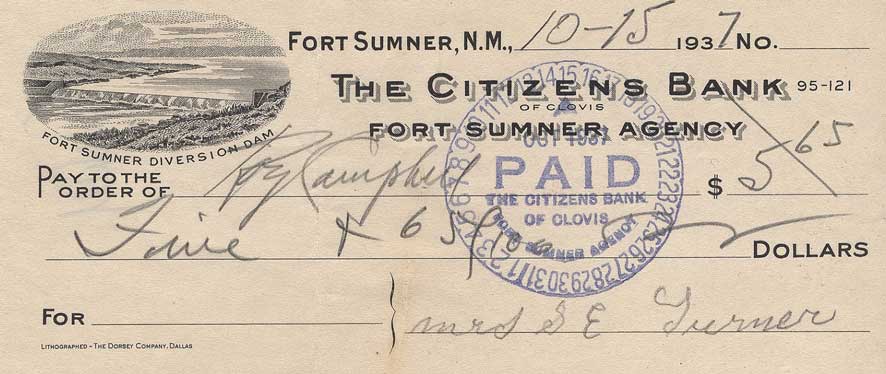 FORT SUMNER, N.M., 10-15 1937 No.
THE CITIZENS BANK 95-121
OF CLOVIS
FORT SUMNER AGENCY
FORT SUMNER DIVERSION DAM
PAY TO THE
ORDER OF Campbell $ 5 65
Five + 65/100 DOLLARS
FOR
Mrs S E Turner
LITHOGRAPHED - THE DORSEY COMPANY, DALLAS
OCT 1937
PAID
THE CITIZENS BANK
OF CLOVIS
FORT SUMNER AGENCY
1 2 3 4 5 6 7 8 9 10 11 12 13 14 15 16 17 18 19 20 21 22 23 24 25 26 27 28 29 30 31